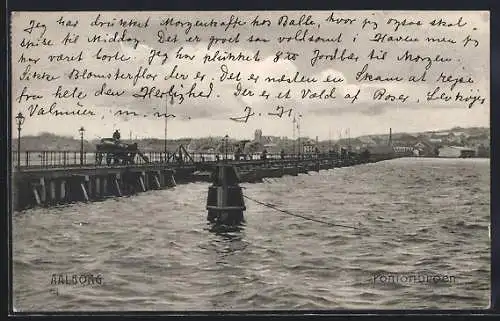 Jeg har drukket Morgenkaffe hos Balle, hvor jeg ogsaa skal
spise til Middag. Det er godt saa voldsomt i Haven men jeg
har været borte. Jeg har plukket 8 Jordbær til Morgen.
Sikke Blomsterflor der er. Det er næsten en Skam at rejse
fra hele den Herlighed. Der er et Væld af Roser, Levkøjer
Valmüer, m. m. J. J.
AALBORG
Pontonbroen